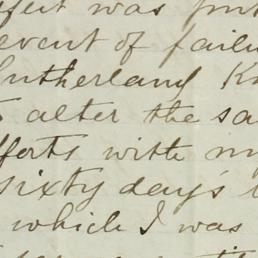 was
event of failu
Sutherland K
alter the sa
fforts with m
sixty day's
which I was